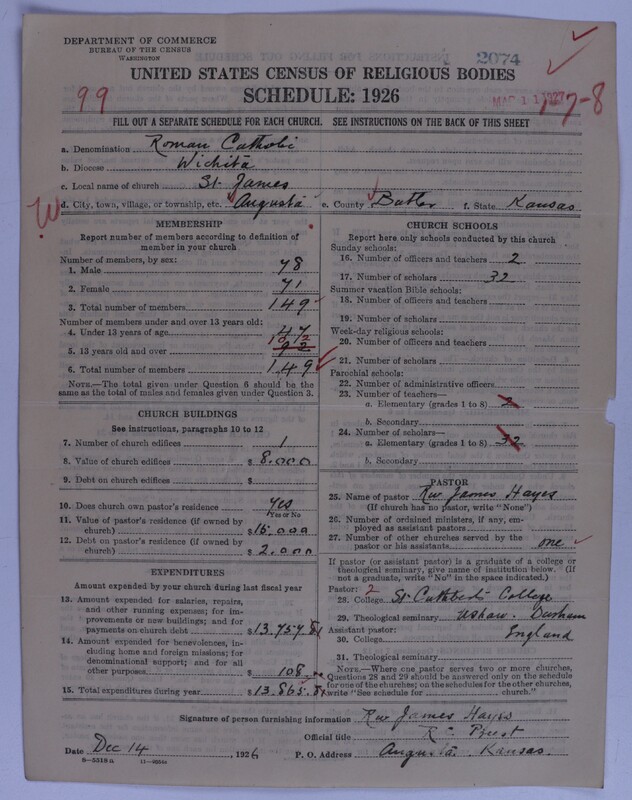 DEPARTMENT OF COMMERCE
BUREAU OF THE CENSUS
WASHINGTON
2074
UNITED STATES CENSUS OF RELIGIOUS BODIES
SCHEDULE: 1926
99
MAR 11 1927
7-8
FILL OUT A SEPARATE SCHEDULE FOR EACH CHURCH. SEE INSTRUCTIONS ON THE BACK OF THIS SHEET
a. Denomination Roman Catholic
b. Diocese Wichita
c. Local name of church St. James
d. City, town, village, or township, etc. Augusta e. County Butler f. State Kansas
MEMBERSHIP
Report number of members according to definition of member in your church
Number of members, by sex:
1. Male 78
2. Female 71
3. Total number of members 149
Number of members under and over 13 years old:
4. Under 13 years of age 47
5. 13 years old and over 102
6. Total number of members 149
NOTE.—The total given under Question 6 should be the same as the total of males and females given under Question 3.
CHURCH BUILDINGS
See instructions, paragraphs 10 to 12
7. Number of church edifices 1
8. Value of church edifices $ 8,000
9. Debt on church edifices $
10. Does church own pastor's residence yes
Yes or No
11. Value of pastor's residence (if owned by church) $ 15,000
12. Debt on pastor's residence (if owned by church) $ 2,000
EXPENDITURES
Amount expended by your church during last fiscal year
13. Amount expended for salaries, repairs, and other running expenses; for improvements or new buildings; and for payments on church debt $ 13,757.81
14. Amount expended for benevolences, including home and foreign missions; for denominational support; and for all other purposes $ 108
15. Total expenditures during year $ 13,865.81
CHURCH SCHOOLS
Report here only schools conducted by this church
Sunday schools:
16. Number of officers and teachers 2
17. Number of scholars 32
Summer vacation Bible schools:
18. Number of officers and teachers
19. Number of scholars
Week-day religious schools:
20. Number of officers and teachers
21. Number of scholars
Parochial schools:
22. Number of administrative officers
23. Number of teachers—
a. Elementary (grades 1 to 8) 2
b. Secondary
24. Number of scholars—
a. Elementary (grades 1 to 8) 32
b. Secondary
PASTOR
25. Name of pastor Rev James Hayes
(If church has no pastor, write "None")
26. Number of ordained ministers, if any, employed as assistant pastors
27. Number of other churches served by the pastor or his assistants one
If pastor (or assistant pastor) is a graduate of a college or theological seminary, give name of institution below. (If not a graduate, write "No" in the space indicated.)
Pastor: 2
28. College St Cuthbert's College
29. Theological seminary Ushaw. Durham
Assistant pastor: England
30. College
31. Theological seminary
NOTE.—Where one pastor serves two or more churches, Questions 28 and 29 should be answered only on the schedule for one of the churches; on the schedules for the other churches, write "See schedule for church."
Signature of person furnishing information Rev James Hayes
Official title R.C. Priest
Date Dec 14 1926 P. O. Address Augusta. Kansas.